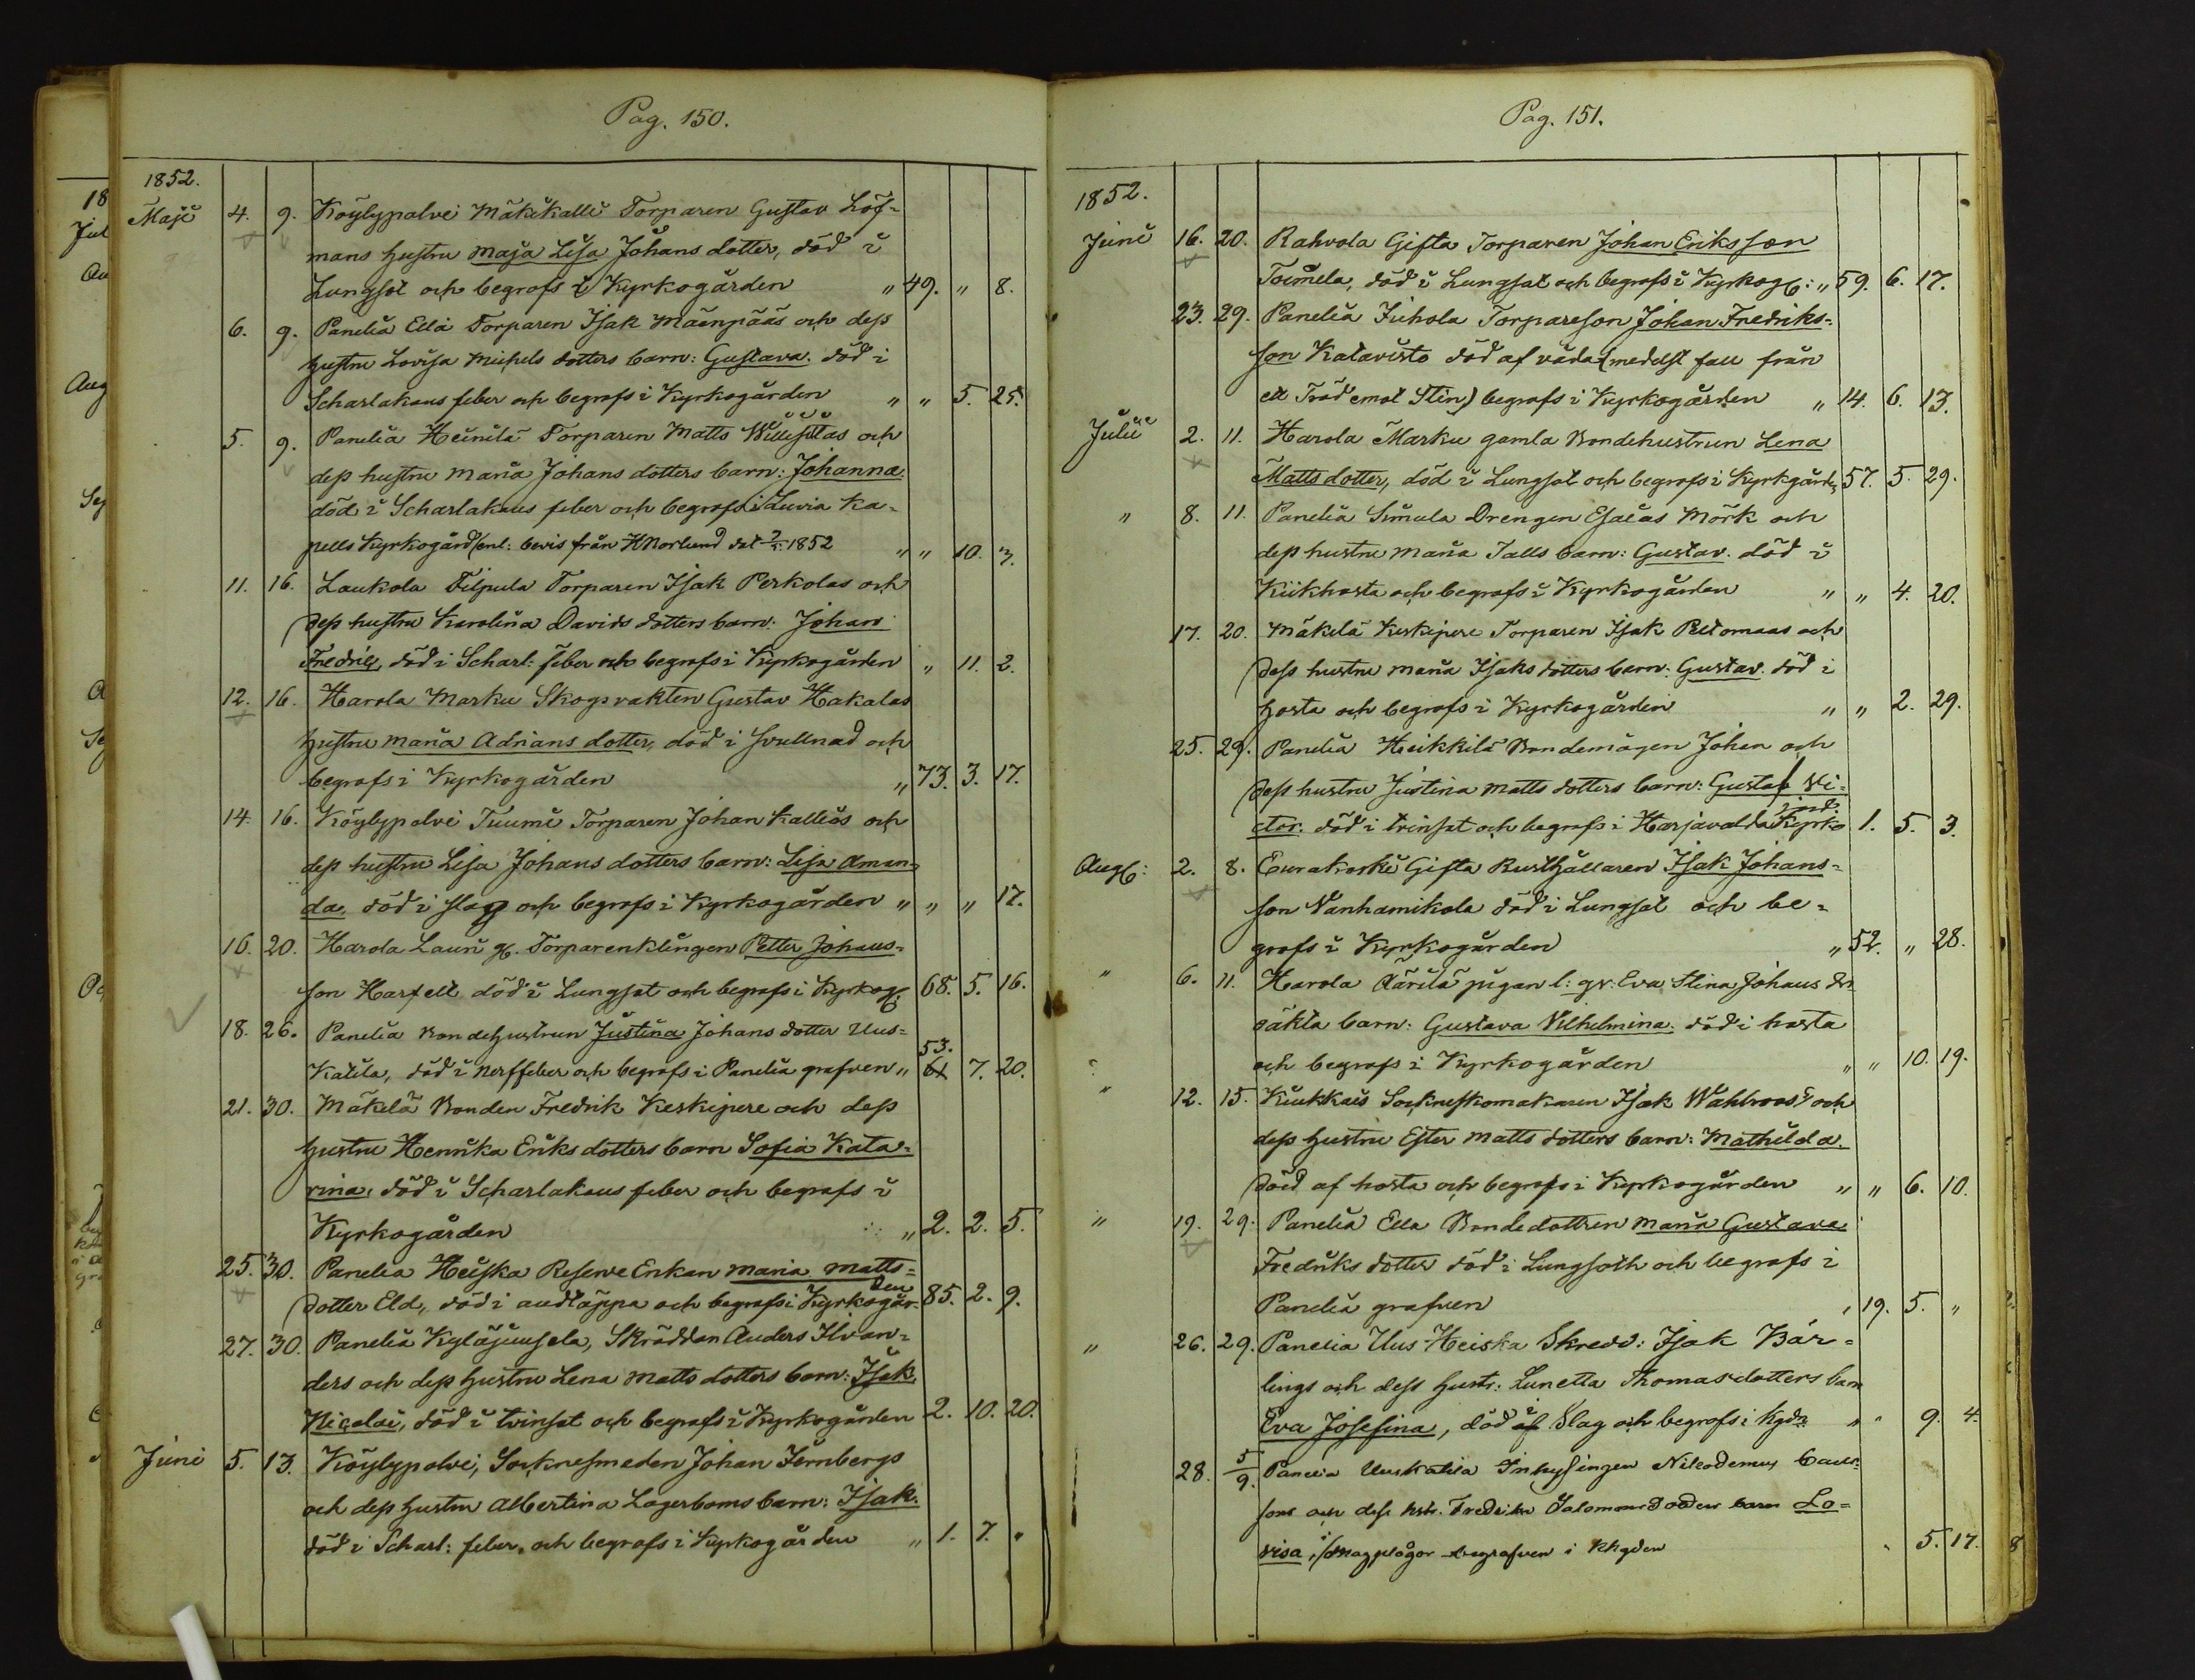 Pag. 150.
1852.
Maji 4. 9. Köylypolvi Mäkikalli Torparen Gustav Löf-
mans hustru Maja Lisa Johans dotter, död i
Lungsot och begrofs i Kyrkogården " 49. " 8.
6. 9. Panelia Ella Torparen Isak Mäenpääs och dess
hustru Lovisa Michels dotters barn: Gustava. död i
Scharlakans feber och begrofs i Kyrkogården " " 5. 25.
5. 9. Panelia Heinilä Torparen Matts och
dess hustru Maria Johans dotters barn: Johanna.
död i Scharlakans feber och begrofs i Luvia Ka-
pells Kyrkogård enl: bevis från Norlund dat 1852 " " 10. 3.
11. 16. Laukola Filpula Torparen Isak Perkolas och
dess hustru Karolina Davids dotters barn: Johan
Fredrik, död i Scharl: feber och begrofs i Kyrkogården " 11. 2.
12. 16. Harola Marku Skogsvakten Gustav Hakalas
hustru Maria Adrians dotter, död i svullnad och
begrofs i Kyrkogården " 73. 3. 17.
14. 16. Köylypolvi Tuumi Torparen Johan Kalliös och
dess hustru Lisa Johans dotters barn: Lisa Aman-
da, död i slag och begrofs i Kyrkogården " " " 17.
16. 20. Harola Lauri Torparenklingen Petter Johans-
son Harfell död i Lungsot och begrofs i Kyrkog: 68. 5. 16.
18. 26. Panelia Bondehustrun Justina Johans dotter Uus-
53.
Katila, död i Nerffeber och begrofs i Panelia grafven " 61 7. 20.
21. 30. Mäkelä Bonden Fredrik Keskipere och dess
hustru Henrika Eriks dotters barn Sofia Kata-
rina, död i Scharlakans feber och begrofs i
Kyrkogården " 2. 2. 5.
25. 30. Panelia Heiska Reserve Enkan Maria Matts-
den
dotter Eld, död i andtäppa och begrofs i Kyrkogår- 85. 2. 9.
27. 30. Panelia Kyläjuusela, Skräddan Anders Ilvan-
ders och dess hustru Lena Matts dotters barn: Isak
Nicolai, död i tvinsot och begrofs i Kyrkogården 2. 10. 20.
Juni 5. 13. Köylypolvi, Socknesmeden Johan Jernbergs
och dess hustru Albertina Lagerboms barn: Isak.
död i Scharl: feber, och begrofs i Kyrkogården " 1. 7. "
Pag. 151.
1852.
Juni 16. 20. Rahvola Gifta Torparen Johan Eriksson
Toimela, död i Lungsot och begrofs i Kyrkog: " 59. 6. 17.
23. 29. Panelia Juhola Torpareson Johan Fredriks-
son Katavisto död af våda (medelst fall från
ett Träd emot Sten) begrofs i Kyrkogården " 14. 6. 13.
Julii 2. 11. Harola Marku gamla Bondehustrun Lena
Matts dotter, död i Lungsot och begrofs i Kyrkgård, 57. 5. 29.
" 8. 11. Panelia Simula Drengen Esaias Mörk och
dess hustru Maria Talls barn: Gustav. död i
Kikhosta och begrofs i Kyrkogården " " 4. 20.
17. 20. Mäkelä Keskipere Torparen Isak Peltomaas och
dess hustru Maria Isaks dotters barn: Gustav. död i
hosta och begrofs i Kyrkogården " " 2. 29.
25. 29. Panelia Heikkilä Bondemågen Johan och
dess hustru Justina Matts dotters barn: Gustaf Vi-
ctor. död i tvinsot och begrofs i Harjavalda Kyrko 1. 5. 3.
Aug: 2. 8. Eurakoski Gifta Rusthållaren Isak Johans-
son Vanhamikola död i Lungsot och be-
grofs i Kyrkogården " 52. " 28.
" 6. 11. Harola Äärilä pigan Eva Stina Johans
oäkta barn: Gustava Vilhelmina. död i hosta
och begrofs i Kyrkogården " " 10. 19.
" 12. 15. Kiukkais Sockneskomakaren Isak Wahlroos's och
dess hustru Ester Matts dotters barn: Mathilda.
död af hosta och begrofs i Kyrkogården " " 6. 10.
" 19. 29. Panelia Ella Bondedottren Maria Gustava
Fredriks dotter död i Lungsoth och begrofs i
Panelia grafven " 19. 5. "
" 26. 29. Panelia Uus-Heiska Skredd: Isak Bär-
lings och dess hustr: Lunetta Thomasdotters barn
Eva Josefina, död af Slag och begrofs i kgdn " " 9. 4.
28. 5/9. Panelia Uuskatila Inhysingen Nikodemus
sons och dess hstr. Fredrika Salomons dotters barn Lo-
visa, i Magplågor begrafven i Khgden " 5. 17.